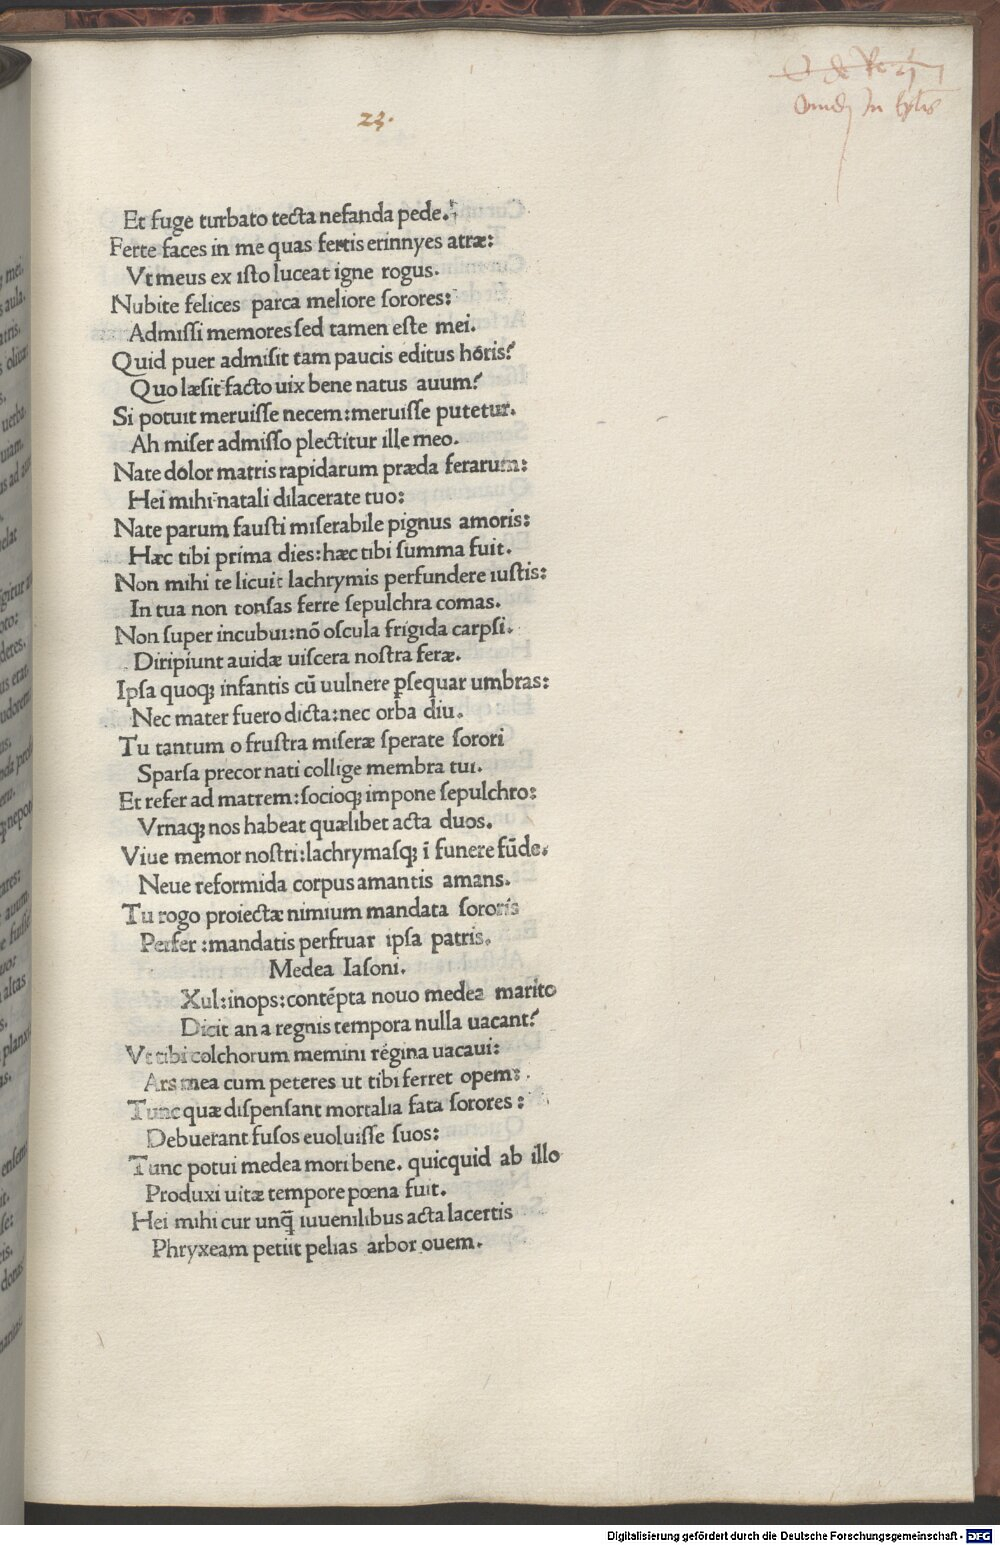 23.
Ouidij In Epl̅is
Et fuge turbato tecta nefanda pede.
Ferte faces in me quas fertis erinnyes atræ:
Vt meus ex iſto luceat igne rogus.
Nubite felices parca meliore ſorores:
Admiſſi memores ſed tamen eſte mei.
Quid puer admiſit tam paucis editus hōris?
Quo læſit facto uix bene natus auum?
Si potuit meruiſſe necem:meruiſſe putetur.
Ah miſer admiſſo plectitur ille meo.
Nate dolor matris rapidarum præda ferarum:
Hei mihi natali dilacerate tuo:
Nate parum fauſti miſerabile pignus amoris:
Hæc tibi prima dies:hæc tibi ſumma fuit.
Non mihi te licuit lachrymis perfundere iuſtis:
In tua non tonſas ferre ſepulchra comas.
Non ſuper incubui:nō oſcula frigida carpſi.
Diripiunt auidæ uiſcera noſtra feræ.
Ipſa quoq; infantis cū uulnere ꝑſequar umbras:
Nec mater fuero dicta:nec orba diu.
Tu tantum o fruſtra miſeræ ſperate ſorori
Sparſa precor nati collige membra tui.
Et refer ad matrem:ſocioq; impone ſepulchro:
Vrnaq; nos habeat quælibet acta duos.
Viue memor noſtri:lachrymaſq; ī funere fūde.
Neue reformida corpus amantis amans.
Tu rogo proiectæ nimium mandata ſororis
Perfer :mandatis perfruar ipſa patris.
Medea Iaſoni.
Xul:inops:contēpta nouo medea marito
Dicit an a regnis tempora nulla uacant?
Vt tibi colchorum memini regina uacaui:
Ars mea cum peteres ut tibi ferret opem:
Tunc quæ diſpenſant mortalia fata ſorores:
Debuerant fuſos euoluiſſe ſuos:
Tunc potui medea mori bene. quicquid ab illo
Produxi uitæ tempore pœna fuit.
Hei mihi cur unq̄ iuuenilibus acta lacertis
Phryxeam petiit pelias arbor ouem.
Digitalisierung gefördert durch die Deutsche Forschungsgemeinschaft - DFG